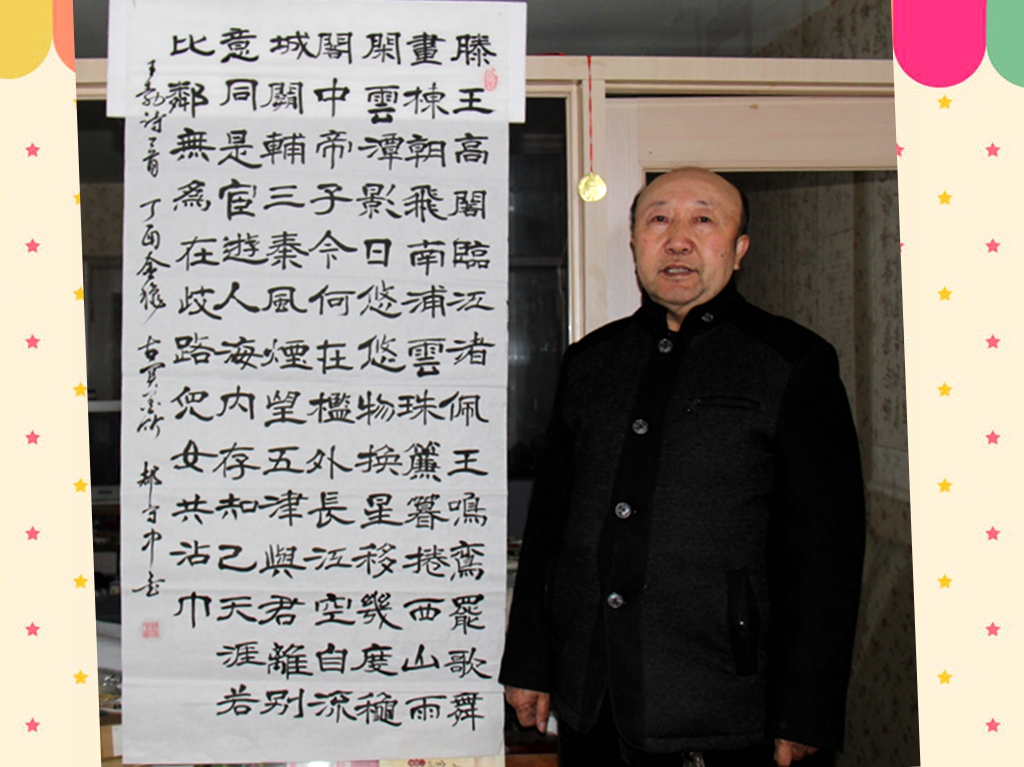 滕王高閣臨江渚佩王鳴鸞罷歌舞
畫棟朝飛南浦雲珠簾暮捲西山雨
閑雲潭影日悠悠物換星移幾度穐
閣中帝子今何在檻外長江空自流
城闕輔三秦風煙望五津與君離別
意同是宦遊人海内存知己天涯若
比鄰無為在歧路兒女共沾巾
王勃詩二首 丁酉金穐 古冀